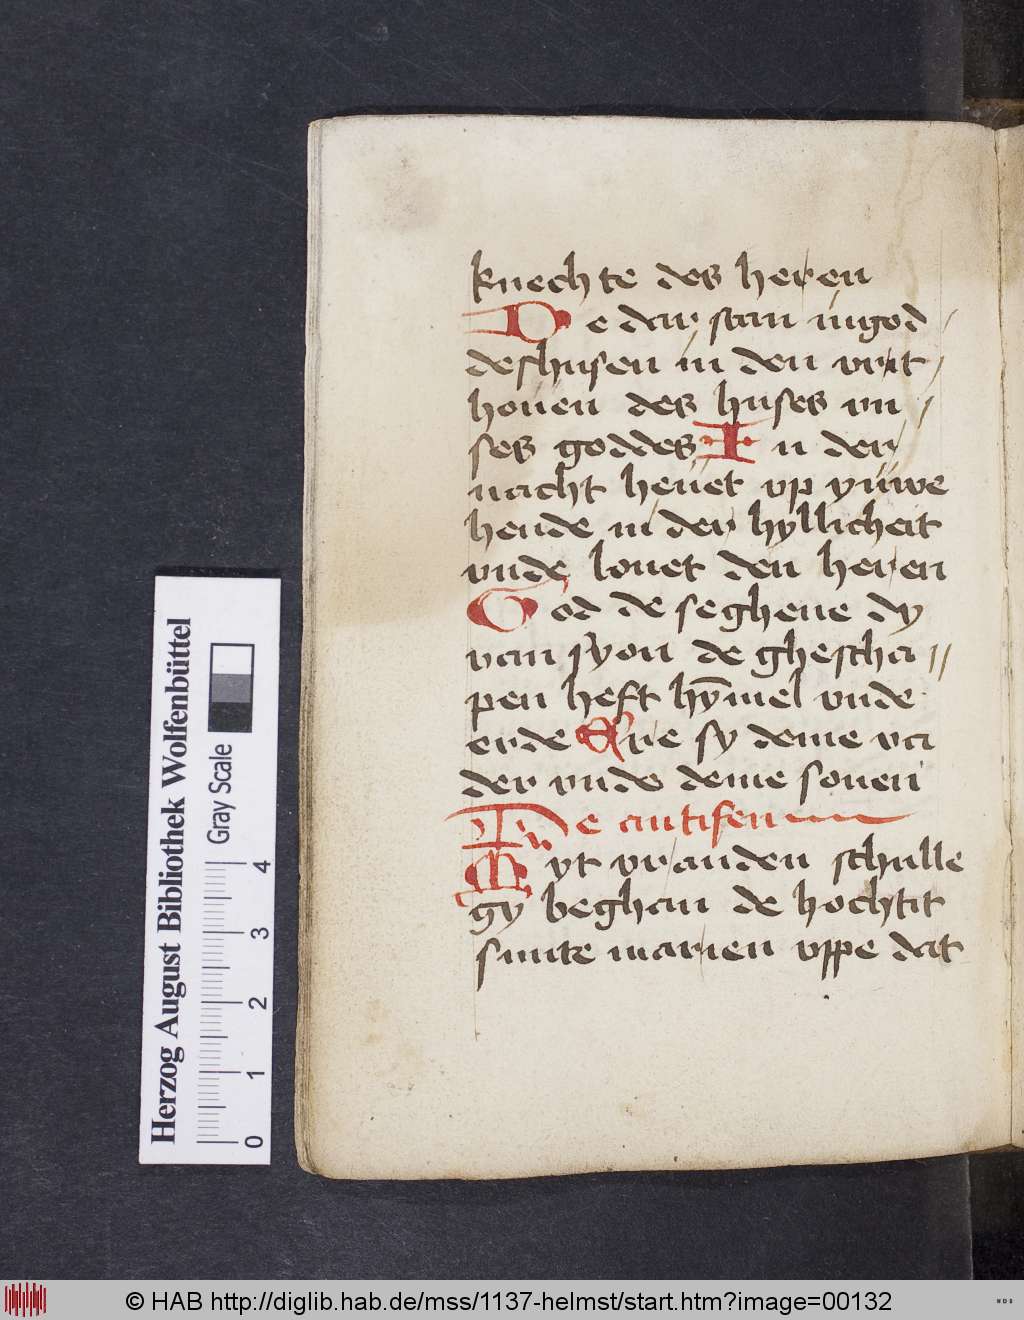 knechte des heren
De dar stan in god
deshusen in den vrit
houen des huses vn
ses goddes In der
nacht heuet vp yuwe
hende in der hyllicheit
vnde louet den heren
God de seghene dy
van syon de ghescha
pen heft hȳmel vnde
erde Ere sy deme va
der vnde deme sonen
De antifen
Myt vrauden schulle
gy beghan de hochtit
sunte marien vppe dat
Herzog August Bibliothek Wolfenbüttel
Gray Scale
0 1 2 3 4
© HAB http://diglib.hab.de/mss/1137-helmst/start.htm?image=00132